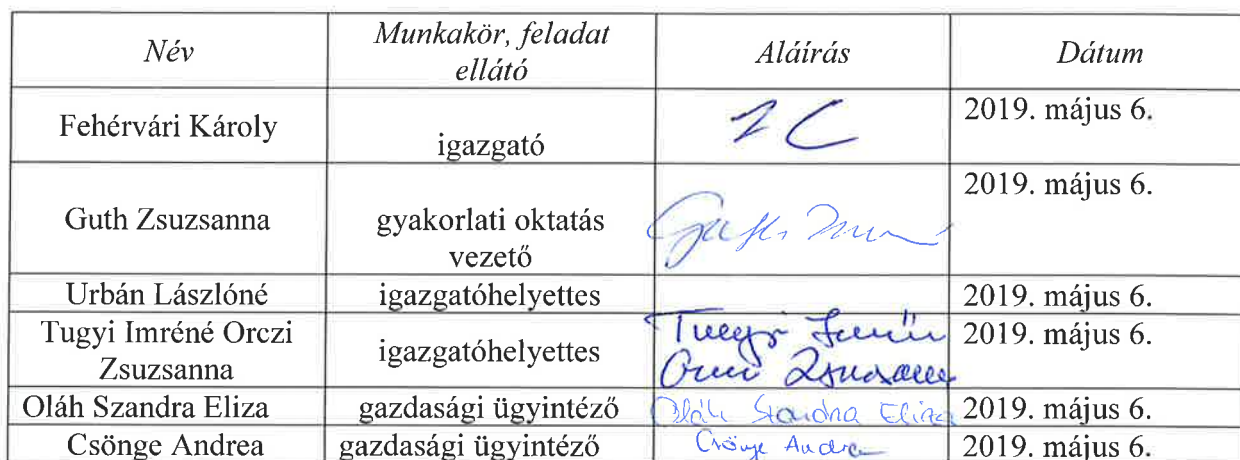 Név Munkakör, feladat ellátó Aláírás Dátum
Fehérvári Károly igazgató 2019. május 6.
Guth Zsuzsanna gyakorlati oktatás vezető 2019. május 6.
Urbán Lászlóné igazgatóhelyettes 2019. május 6.
Tugyi Imréné Orczi Zsuzsanna igazgatóhelyettes Tugyi Imréné Orczi Zsuzsanna 2019. május 6.
Oláh Szandra Eliza gazdasági ügyintéző Oláh Szandra Eliza 2019. május 6.
Csönge Andrea gazdasági ügyintéző Csönge Andrea 2019. május 6.